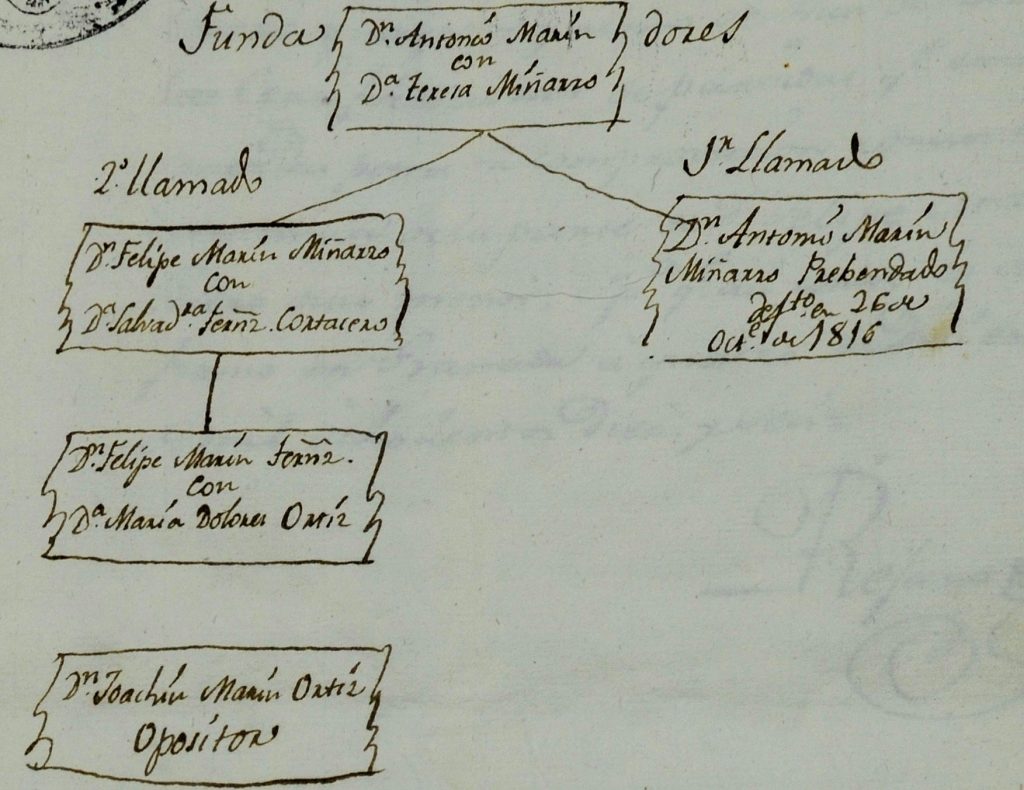 Funda Dn. Antonio Marín dores
con
Da. Teresa Miñarro
2º. llamado
1r. Llamado
Dn. Felipe Marín Miñarro
con
Da. Salvadra. Ferñz. Cortacero
Dn. Antonio Marín
Miñarro Prebendado
defto. en 26 de
Octe. de 1816
Dn. Felipe Marín Ferñz.
con
Da. María Dolores Ortíz
Dn. Joachín Marín Ortíz
Opositor